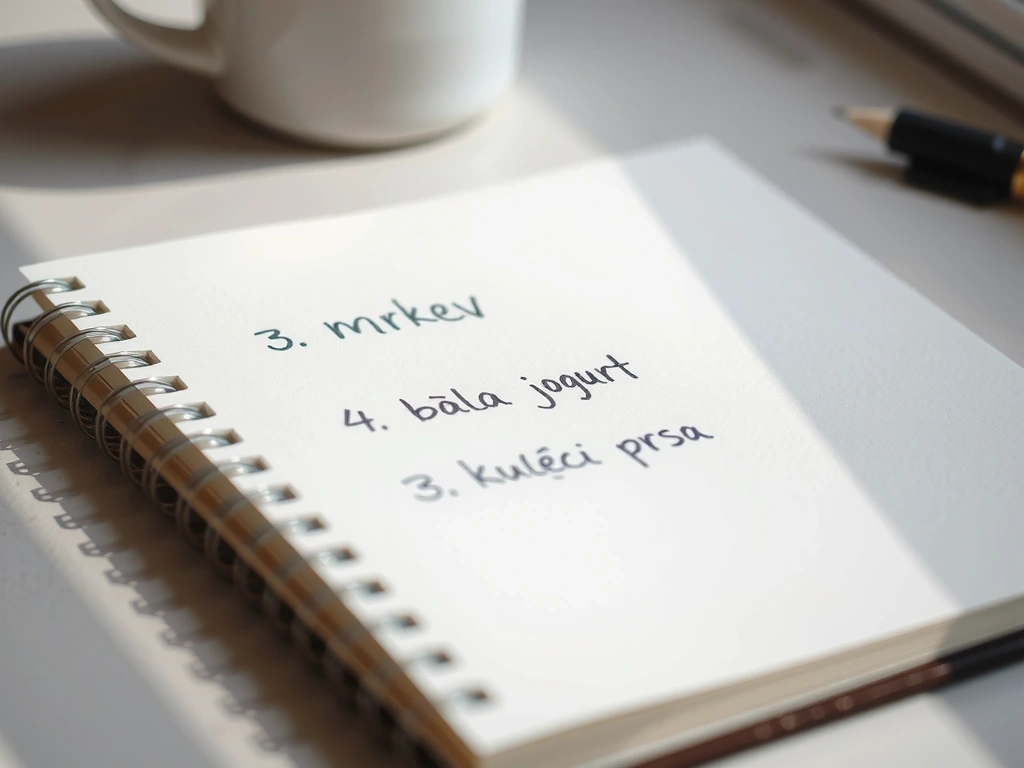 3. mrkev
4. bāla jogurt
3. kulę́ci prsa